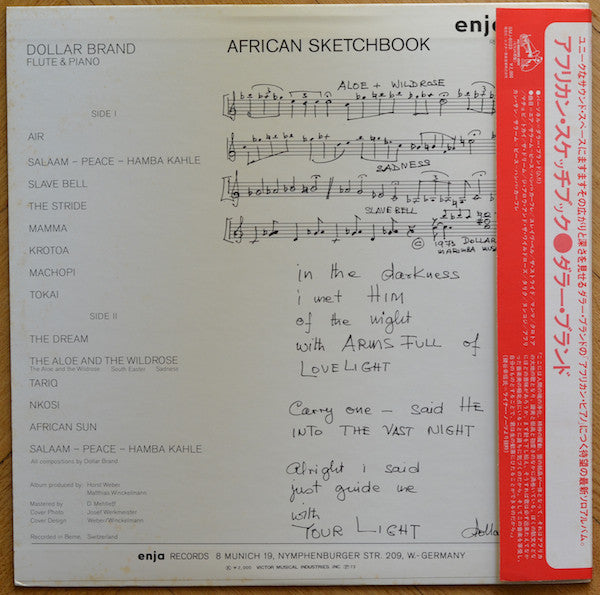 enja
DOLLAR BRAND
FLUTE & PIANO
AFRICAN SKETCHBOOK
SIDE I
AIR
SALAAM – PEACE – HAMBA KAHLE
SLAVE BELL
THE STRIDE
MAMMA
KROTOA
MACHOPI
TOKAI
SIDE II
THE DREAM
THE ALOE AND THE WILDROSE
The Aloe and the Wildrose South Easter Sadness
TARIQ
NKOSI
AFRICAN SUN
SALAAM – PEACE – HAMBA KAHLE
All compositions by Dollar Brand
Album produced by: Horst Weber
Matthias Winckelmann
Mastered by D Mehtieff
Cover Photo Josef Werkmeister
Cover Design Weber/Winckelmann
Recorded in Berne, Switzerland
ALOE + WILDROSE
SADNESS
SLAVE BELL
© 1973 DOLLAR
in the darkness
i met HIM
of the night
with ARMS FULL of
LOVELIGHT
Carry one – said HE
INTO THE VAST NIGHT
Alright i said
just guide me
with
YOUR LIGHT
Dollar
enja RECORDS 8 MUNICH 19, NYMPHENBURGER STR. 209, W.-GERMANY
¥2,000 VICTOR MUSICAL INDUSTRIES INC.
ユニークなサウンド・スペースにますますその広がりと深さを見せるダラー・ブランドの“アフリカン・ピアノ”につぐ待望の最新ソロアルバム。
アフリカン・スケッチブック●ダラー・ブランド